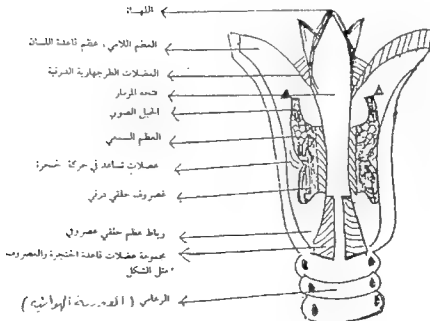 اللهاة
العظم اللامي، عظم قاعدة اللسان
العضلات الطرجهارية الدرقية
فتحة المزمار
الحبل الصوتي
العظم السمسمي
عضلات تساعد في حركة الحنجرة
غضروف حلقي درقي
رباط عظم حلقي غضروفي
مجموعة عضلات قاعدة الحنجرة والغضروف
مثل الشكل
الرغامي (القصبة الهوائية)